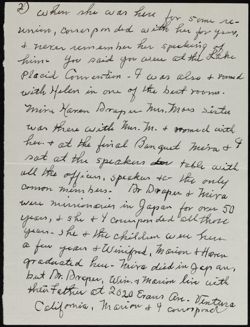 2)
when she was here for some re-
union, corresponded with her for years,
& never remember her speaking of
him. You said you were at the Lake
Placid Convention. I was also & roomed
with Helen in one of the best rooms.
Miss Marion Draper Mrs. Moss sister
was there with Mrs. M. & roomed with
her & at the final Banquet Mira & I
sat at the speakers table with
all the officers, speakers &c the only
common members. Dr Draper & Mira
were missionaries in Japan for over 50
years, & she & I corresponded all those
years. She & the children were here
a few years & Winifred, Marion & Haven
graduated here. Mira died in Japan,
but Dr. Draper, Win. & Marion live with
their Father at 2020 Evans Ave. Ventura
California, Marion & I correspond